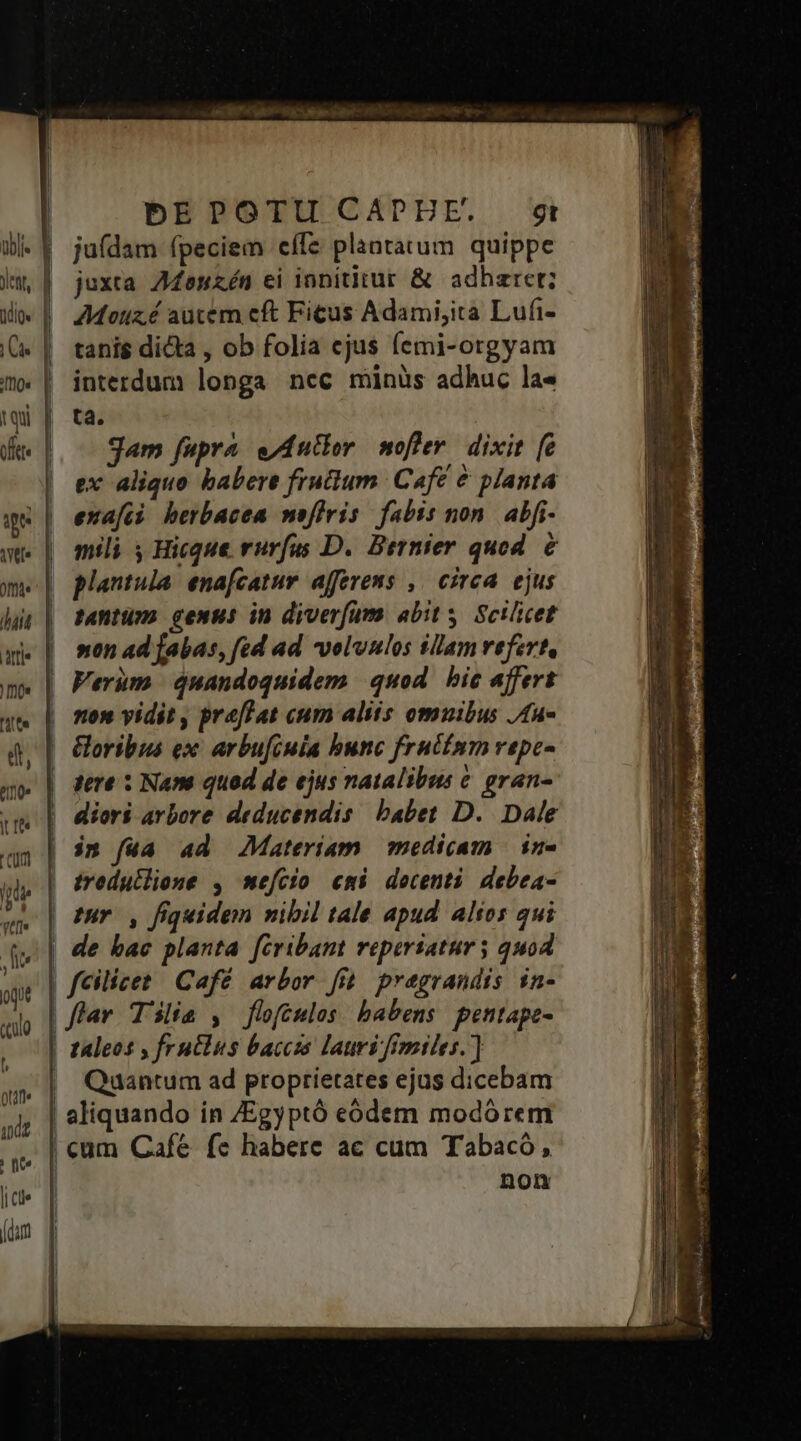 DE POTU CAPHE'. 91
juſdam ſpeciem eſſe plantarum quippe
juxta Mouzén ei innititur & adhæret;
Mouzé autem eſt Ficus Adami, ita Luſi-
tanis dicta, ob folia ejus ſemi-orgyam
interdum longa nec minùs adhuc la-
ta.
Jam ſupra Auctor noſter dixit ſe
ex aliquo habere fructum Café è planta
enaſci herbacea noſtris fabis non abſi-
mili ; Hicque rurſus D. Bernier quod è
plantula enaſcatur afferens , circa ejus
tantùm genus in diverſum abit ; Scilicet
non ad fabas, ſed ad volvulos illam refert,
Verùm quandoquidem quod hic affert
non vidit, præſtat cum aliis omnibus Au-
ctoribus ex arbuſcula hunc fructum repe-
tere : Nam quod de ejus natalibus è gran-
diori arbore deducendis habet D. Dale
in ſua ad Materiam medicam in-
troductione , neſcio cui docenti debea-
tur , ſiquidem nihil tale apud alios qui
de hac planta ſcribant reperiatur ; quod
ſcilicet Café arbor ſit prægrandis in-
ſtar Tiliæ , floſculos habens pentape-
taleos , fructus baccis lauri ſimiles. ]
Quantum ad proprietates ejus dicebam
aliquando in Ægyptô eôdem modò rem
cum Café ſe habere ac cum Tabacô ,
non